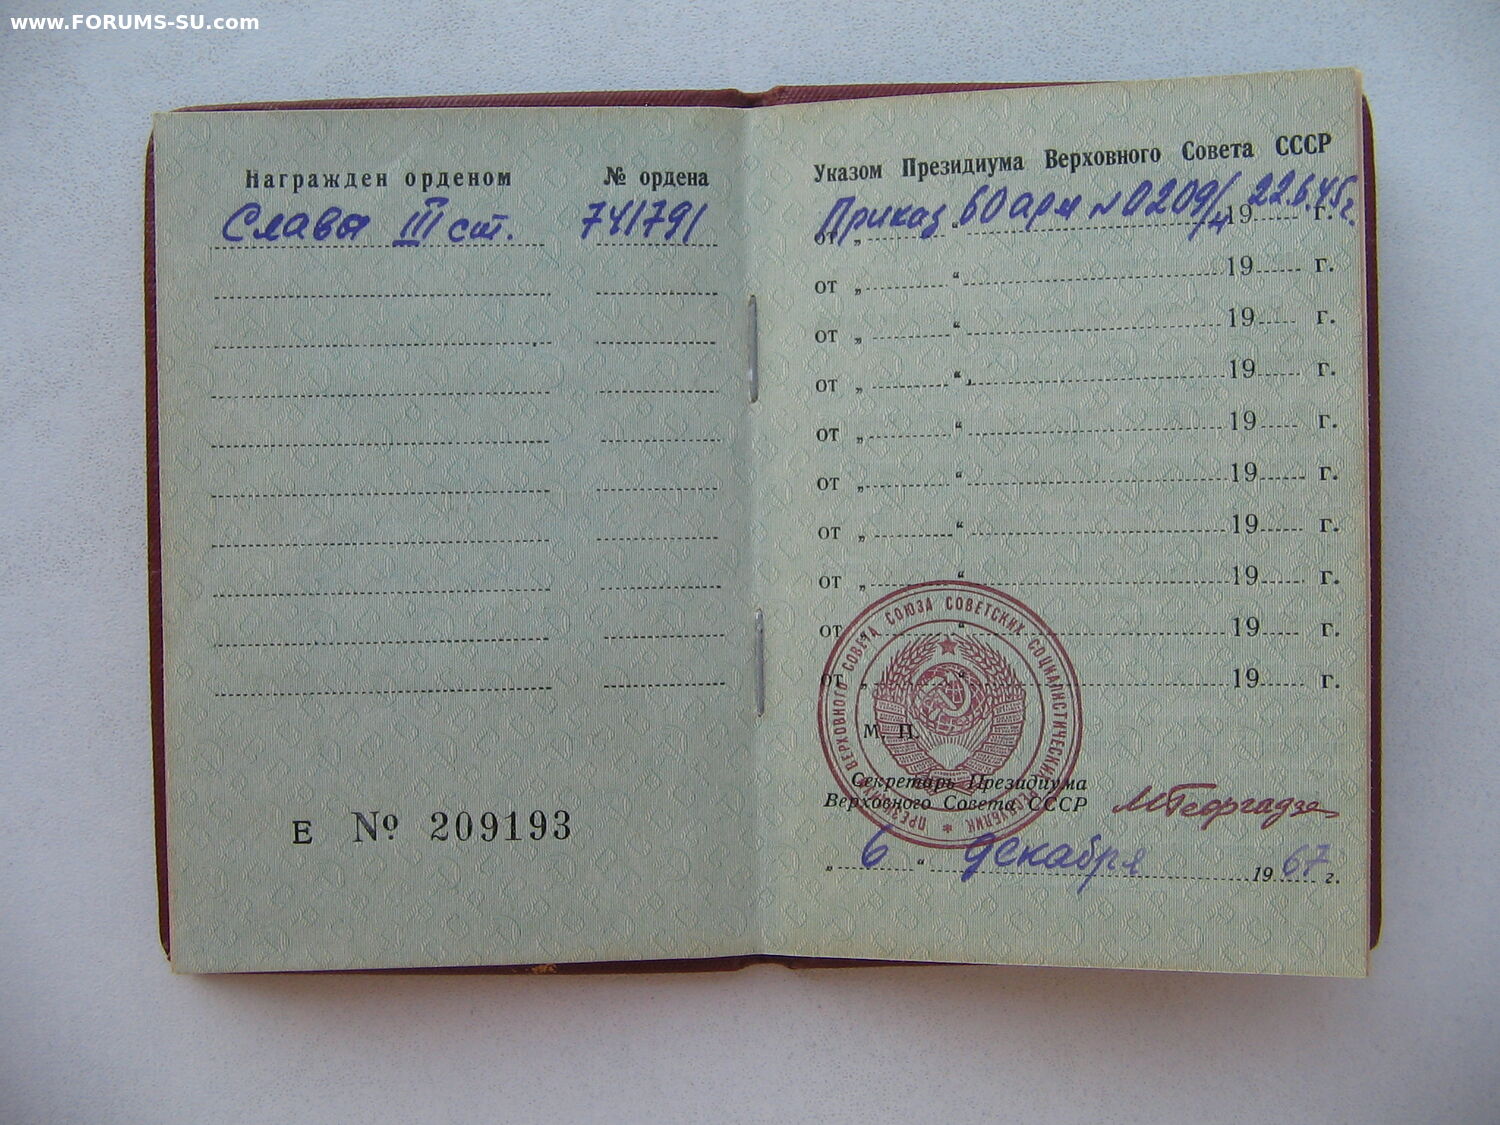 www.FORUMS-SU.com
Награжден орденом № ордена
Славы III ст. 741791
Е № 209193
Указом Президиума Верховного Совета СССР
от „ Приказ 60 арм № 0209/н “ 22.6.45г. 19 г.
от „ “ 19 г.
от „ “ 19 г.
от „ “ 19 г.
от „ “ 19 г.
от „ “ 19 г.
от „ “ 19 г.
от „ “ 19 г.
от „ “ 19 г.
от „ “ 19 г.
ПРЕЗИДИУМ ВЕРХОВНОГО СОВЕТА СОЮЗА СОВЕТСКИХ СОЦИАЛИСТИЧЕСКИХ РЕСПУБЛИК
М. П.
Секретарь Президиума
Верховного Совета СССР М Георгадзе
„ 6 “ декабря 1967 г.